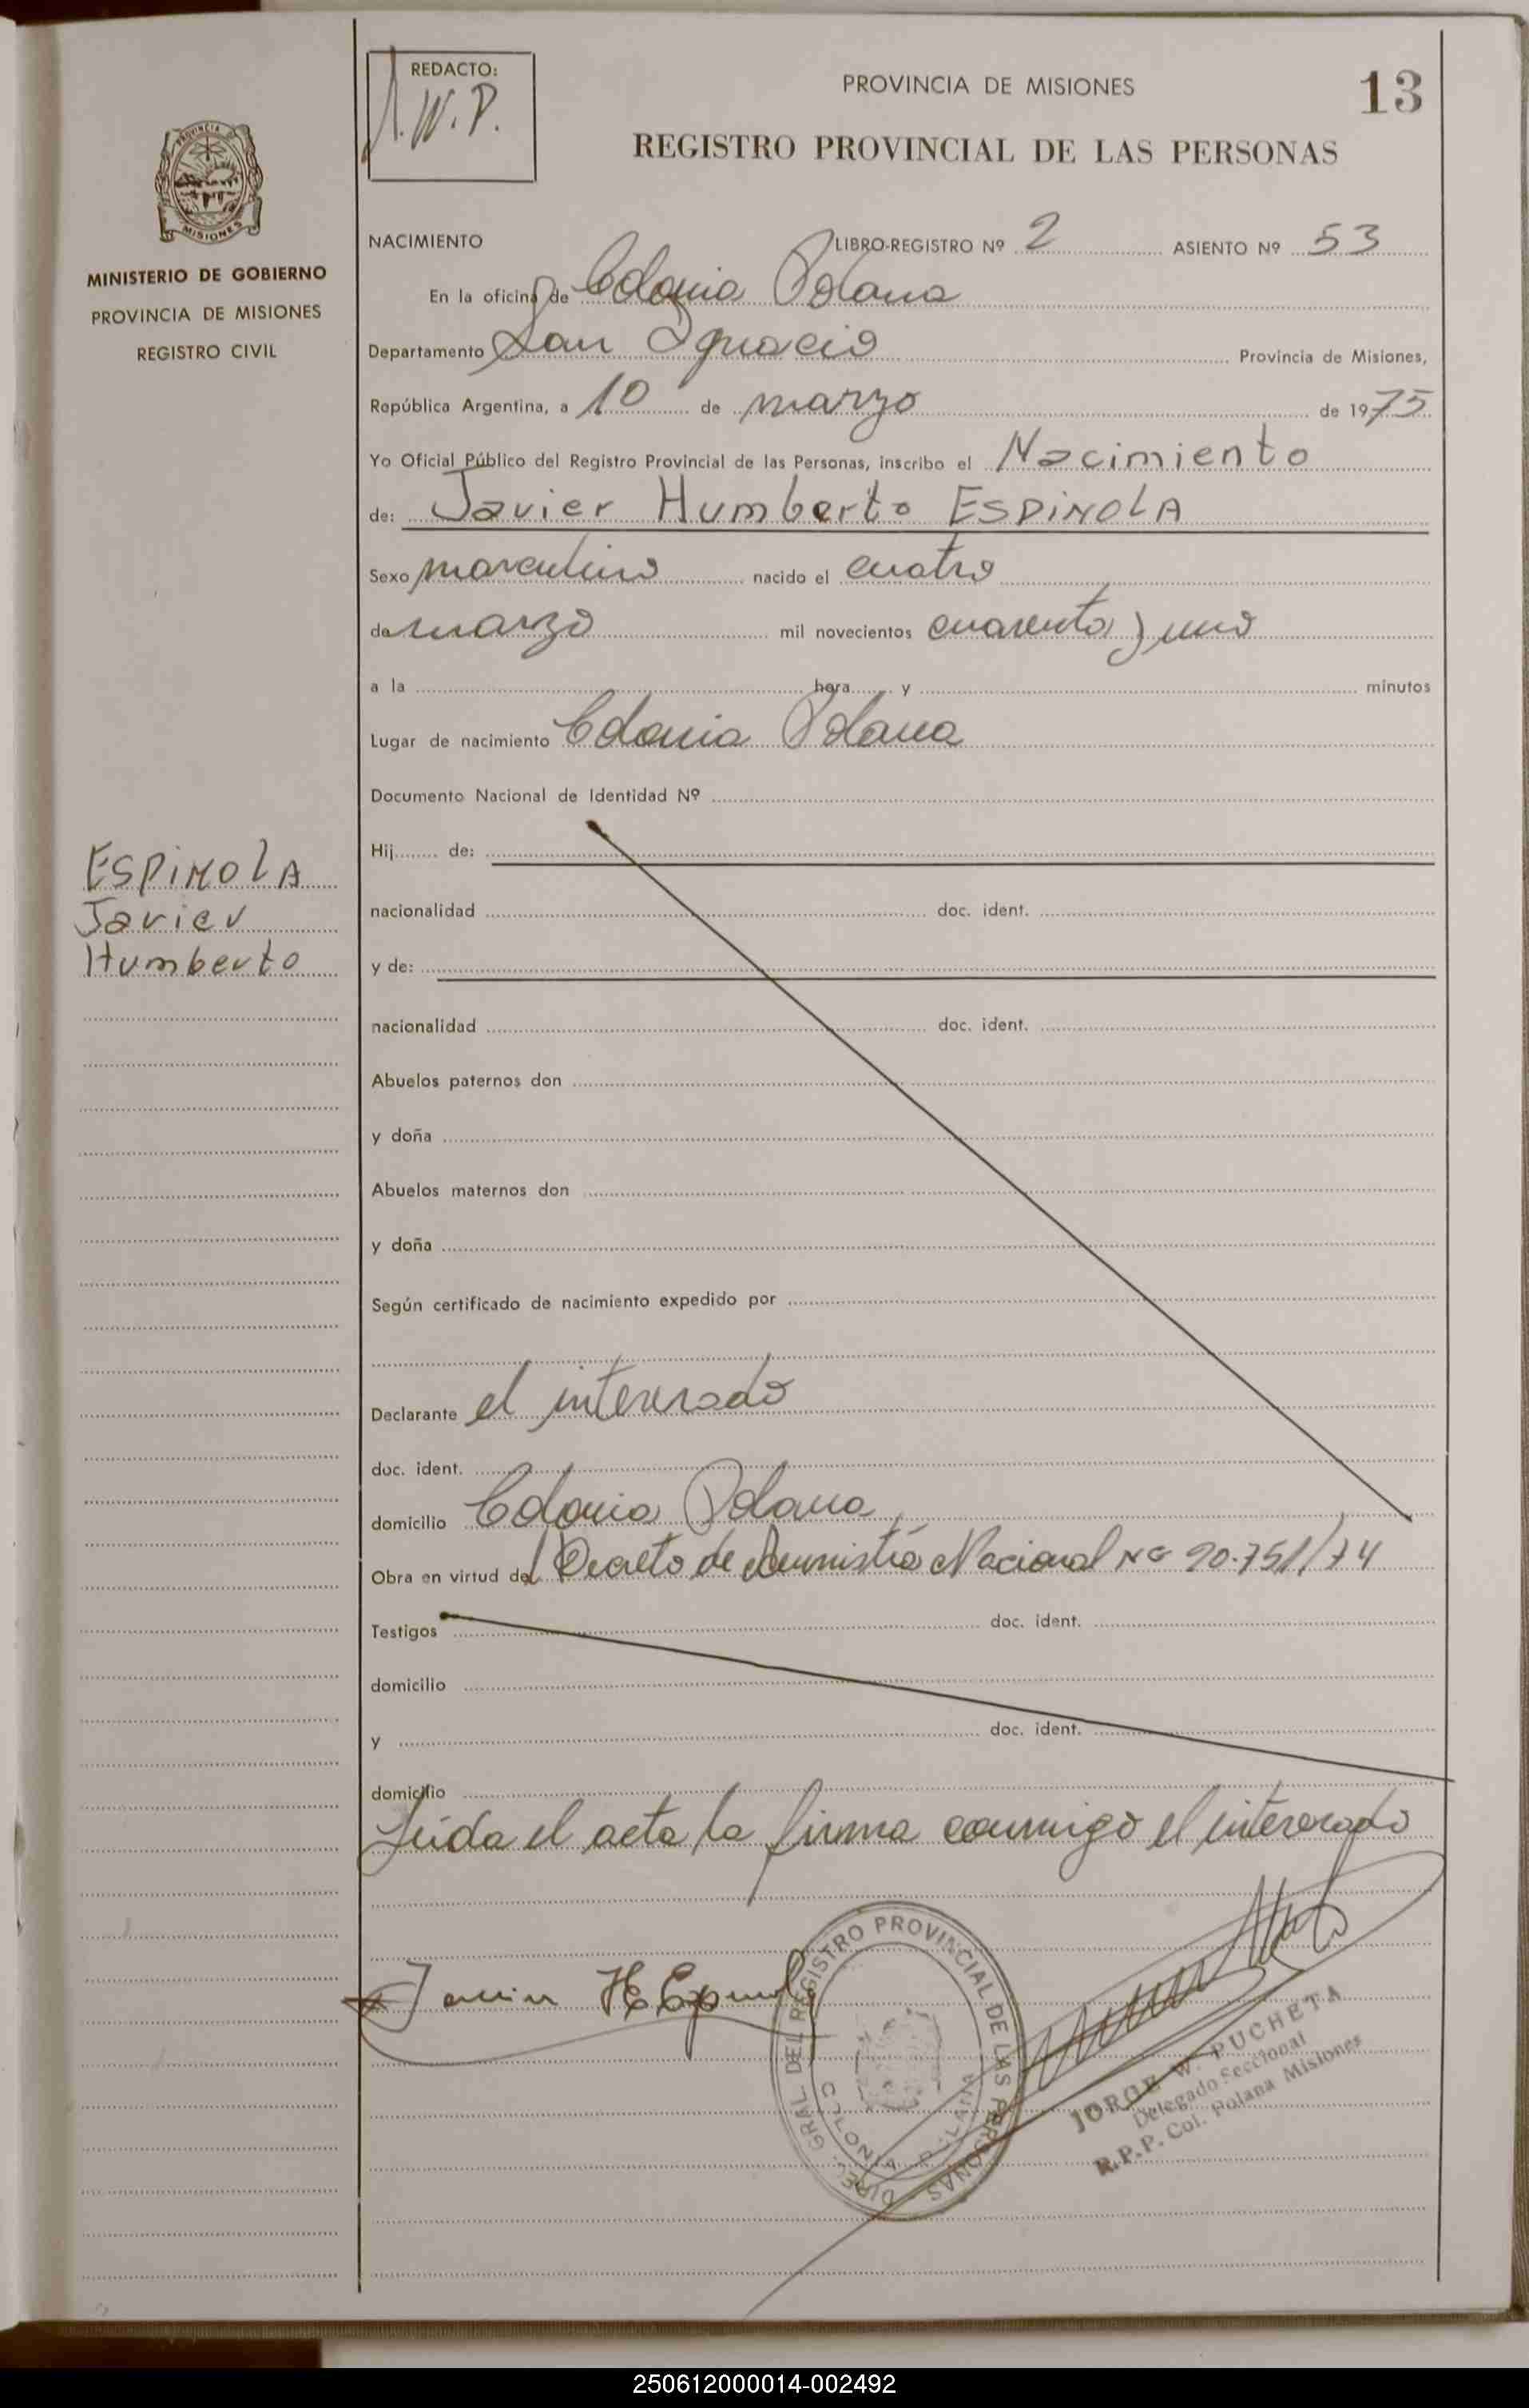 REDACTO:
J.W.P.
PROVINCIA DE MISIONES
13
REGISTRO PROVINCIAL DE LAS PERSONAS
PROVINCIA DE
MISIONES
MINISTERIO DE GOBIERNO
PROVINCIA DE MISIONES
REGISTRO CIVIL
NACIMIENTO LIBRO-REGISTRO Nº 2 ASIENTO Nº 53
En la oficina de Colonia Polana
Departamento San Ignacio Provincia de Misiones,
República Argentina, a 10 de marzo de 1975
Yo Oficial Público del Registro Provincial de las Personas, inscribo el Nacimiento
de: Javier Humberto ESPINOLA
Sexo masculino nacido el cuatro
de marzo mil novecientos cuarenta y uno
a la hora y minutos
Lugar de nacimiento Colonia Polana
Documento Nacional de Identidad Nº
Hij de:
ESPINOLA
Javier
Humberto
nacionalidad doc. ident.
y de:
nacionalidad doc. ident.
Abuelos paternos don
y doña
Abuelos maternos don
y doña
Según certificado de nacimiento expedido por
Declarante el interesado
doc. ident.
domicilio Colonia Polana
Obra en virtud del Decreto de Amnistía Nacional Nº 20.751/74
Testigos doc. ident.
domicilio
y doc. ident.
domicilio
Leida el acta la firma conmigo el interesado
Javier H Espinola
DIREC. GRAL DEL REGISTRO PROVINCIAL DE LAS PERSONAS
COLONIA POLANA
JORGE W. PUCHETA
Delegado Seccional
R.P.P. Col. Polana Misiones
250612000014-002492